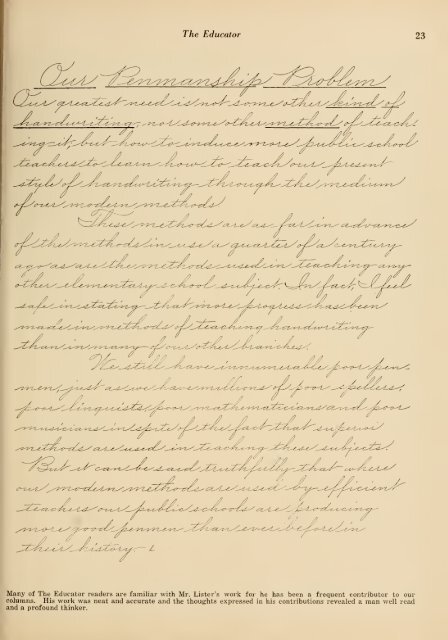 The Educator 23
Our Penmanship Problem
Our greatest need is not some other kind of
handwriting, nor some other method of teach-
ing it, but how to induce more public school
teachers to learn how to teach our present
style of handwriting through the medium
of our modern methods.
These methods are as far in advance
of the methods in use a quarter of a century
ago as are the methods used in teaching any
other elementary school subject. In fact, I feel
safe in stating that more progress has been
made in methods of teaching handwriting
than in many of our other branches.
We still have innumerable poor pen-
men, just as we have millions of poor spellers,
poor linguists, poor mathematicians and poor
musicians in spite of the fact that superior
methods are used in teaching these subjects.
But it can be said truthfully that where
our modern methods are used by efficient
teachers our public schools are producing
more good penmen than ever before in
their history.
Many of The Educator readers are familiar with Mr. Lister's work for he has been a frequent contributor to our
columns. His work was neat and accurate and the thoughts expressed in his contributions revealed a man well read
and a profound thinker.